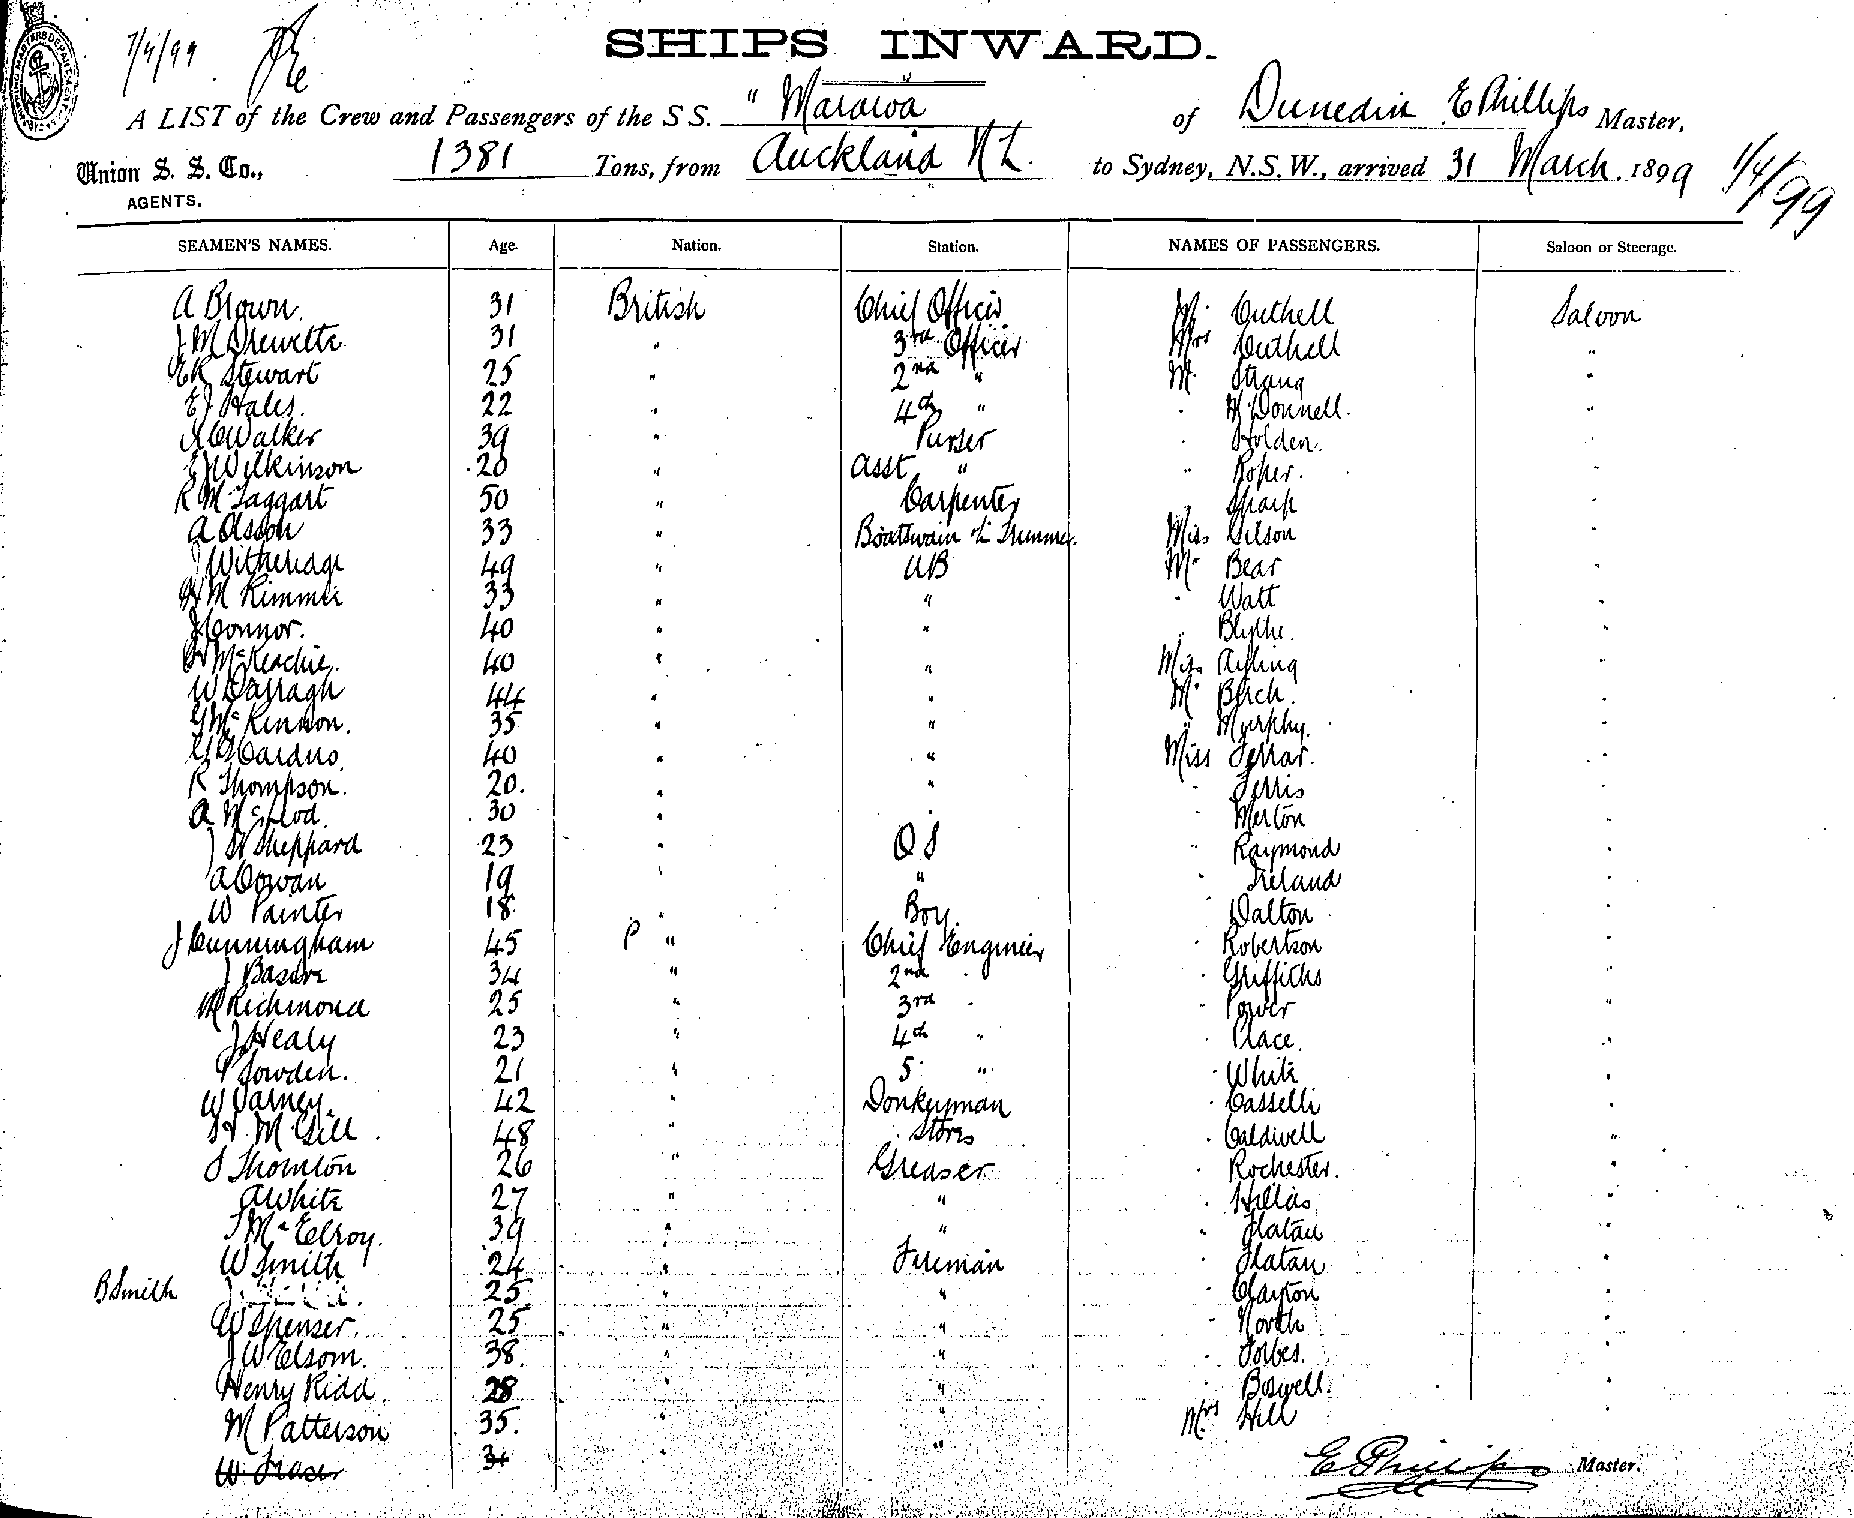 7/4/99
SHIPS INWARD.
A LIST of the Crew and Passengers of the S S. "Mararoa of Dunedin E Phillips Master,
Union S. S. Co., 1381 Tons, from Auckland N Z. to Sydney, N.S.W., arrived 31 March. 1899 1/4/99
AGENTS.
SEAMEN'S NAMES. Age. Nation. Station. NAMES OF PASSENGERS. Saloon or Steerage.
A Brown. 31 British Chief Officer Mr. Cuthell Saloon
J M Drewette 31 " 3rd Officer Mrs Cuthell "
E R Stewart 25 " 2nd " Mr Strang "
E J Hales. 22 " 4th " " McDonnell. "
Walker 39 " Purser " Holden. "
E J Wilkinson 20 " Asst " " Roper. "
R McTaggart 50 " Carpenter " Sharp "
A Olsson 33 " Boatswain & Trimmer. Miss Gilson "
J Witheridge 49 " AB Mr Bear "
Rimmer 33 " " " Watt "
J Connor. 40 " " " Blythe. "
McKeachie. 40 " " Miss Ayling "
W Darragh 44 " " Mr Birch. "
G McKinnon. 35 " " " Murphy. "
Cardno. 40 " " Miss Ferrar. "
R Thompson. 20. " " " Ferris "
A McLeod. 30 " " " Merton "
J H Sheppard 23 " O S " Raymond "
A Cowan 19 " " " Ireland "
W Painter 18 " Boy. " Dalton "
J Cunningham 45 P " Chief Engineer " Robertson "
J Basire 34 " 2nd " " Griffiths "
M Richmond 25 " 3rd " " Power "
J Healy 23 " 4th " " Place. "
P Sowden. 21 " 5 " " White "
W Varney. 42 " Donkeyman " Casselli "
H. McGill 48 " Stores " Caldwell "
J Thornton 26 " Greaser " Rochester. "
A White 27 " " " Hillas "
T McElroy. 39 " " " Flatau "
W Smith 24 " Fireman " Flatau "
B Smith 25 " " " Clayton "
W Spenser. 25 " " " North "
J W Elsom. 38. " " " Forbes. "
Henry Ridd. 28 " " " Boswell. "
M Patterson 35. " " Mrs Hill "
W Fraser 34 " "
E Phillips Master.